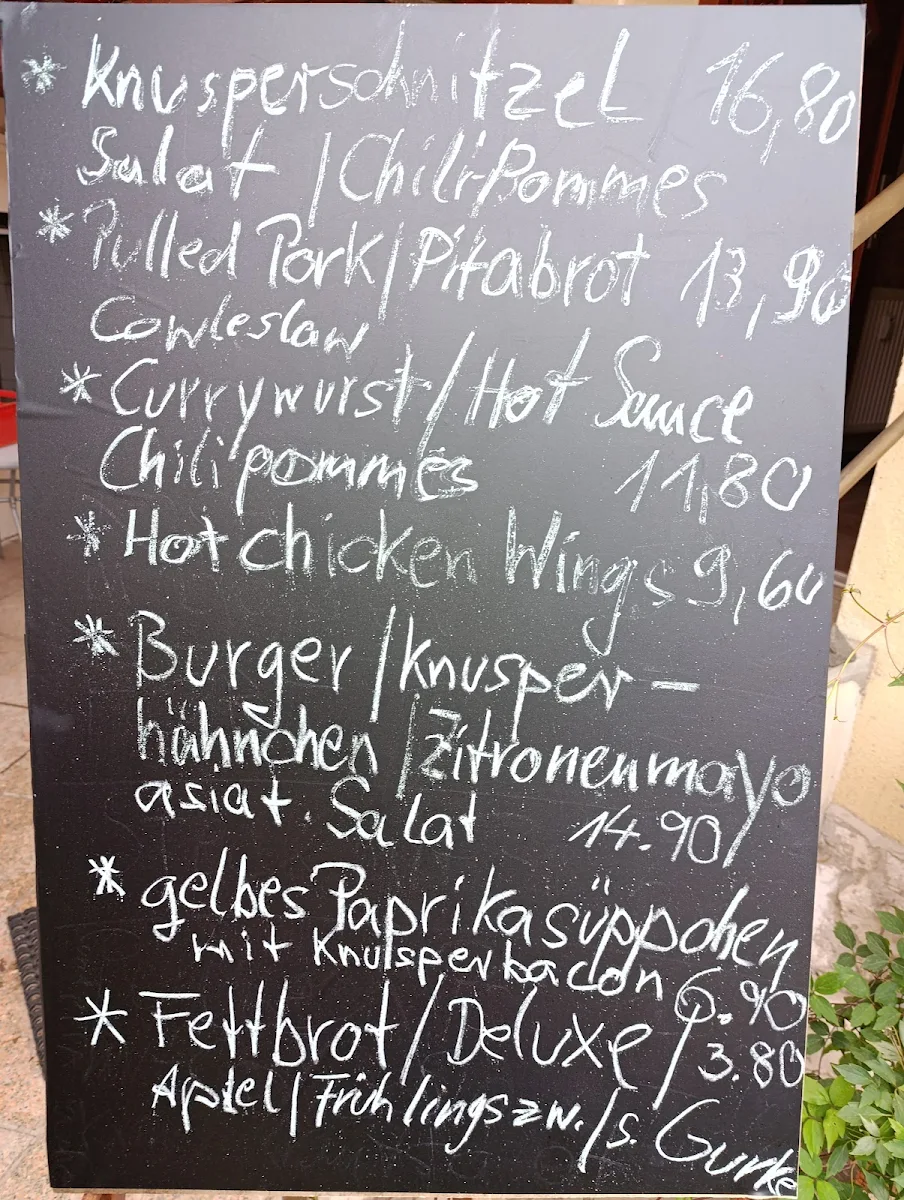 * Knusperschnitzel 16,80
Salat / Chili-Pommes
* Pulled Pork / Pitabrot 13,90
Cowleslaw
* Currywurst / Hot Sauce
Chilipommes 11,80
* Hot chicken Wings 9,60
* Burger / Knusper-
hähnchen / Zitronenmayo
asiat. Salat 14.90
* gelbes Paprikasüppchen
mit Knusperbacon 6.90
* Fettbrot / Deluxe / 3.80
Apfel / Frühlingszw. / s. Gurke